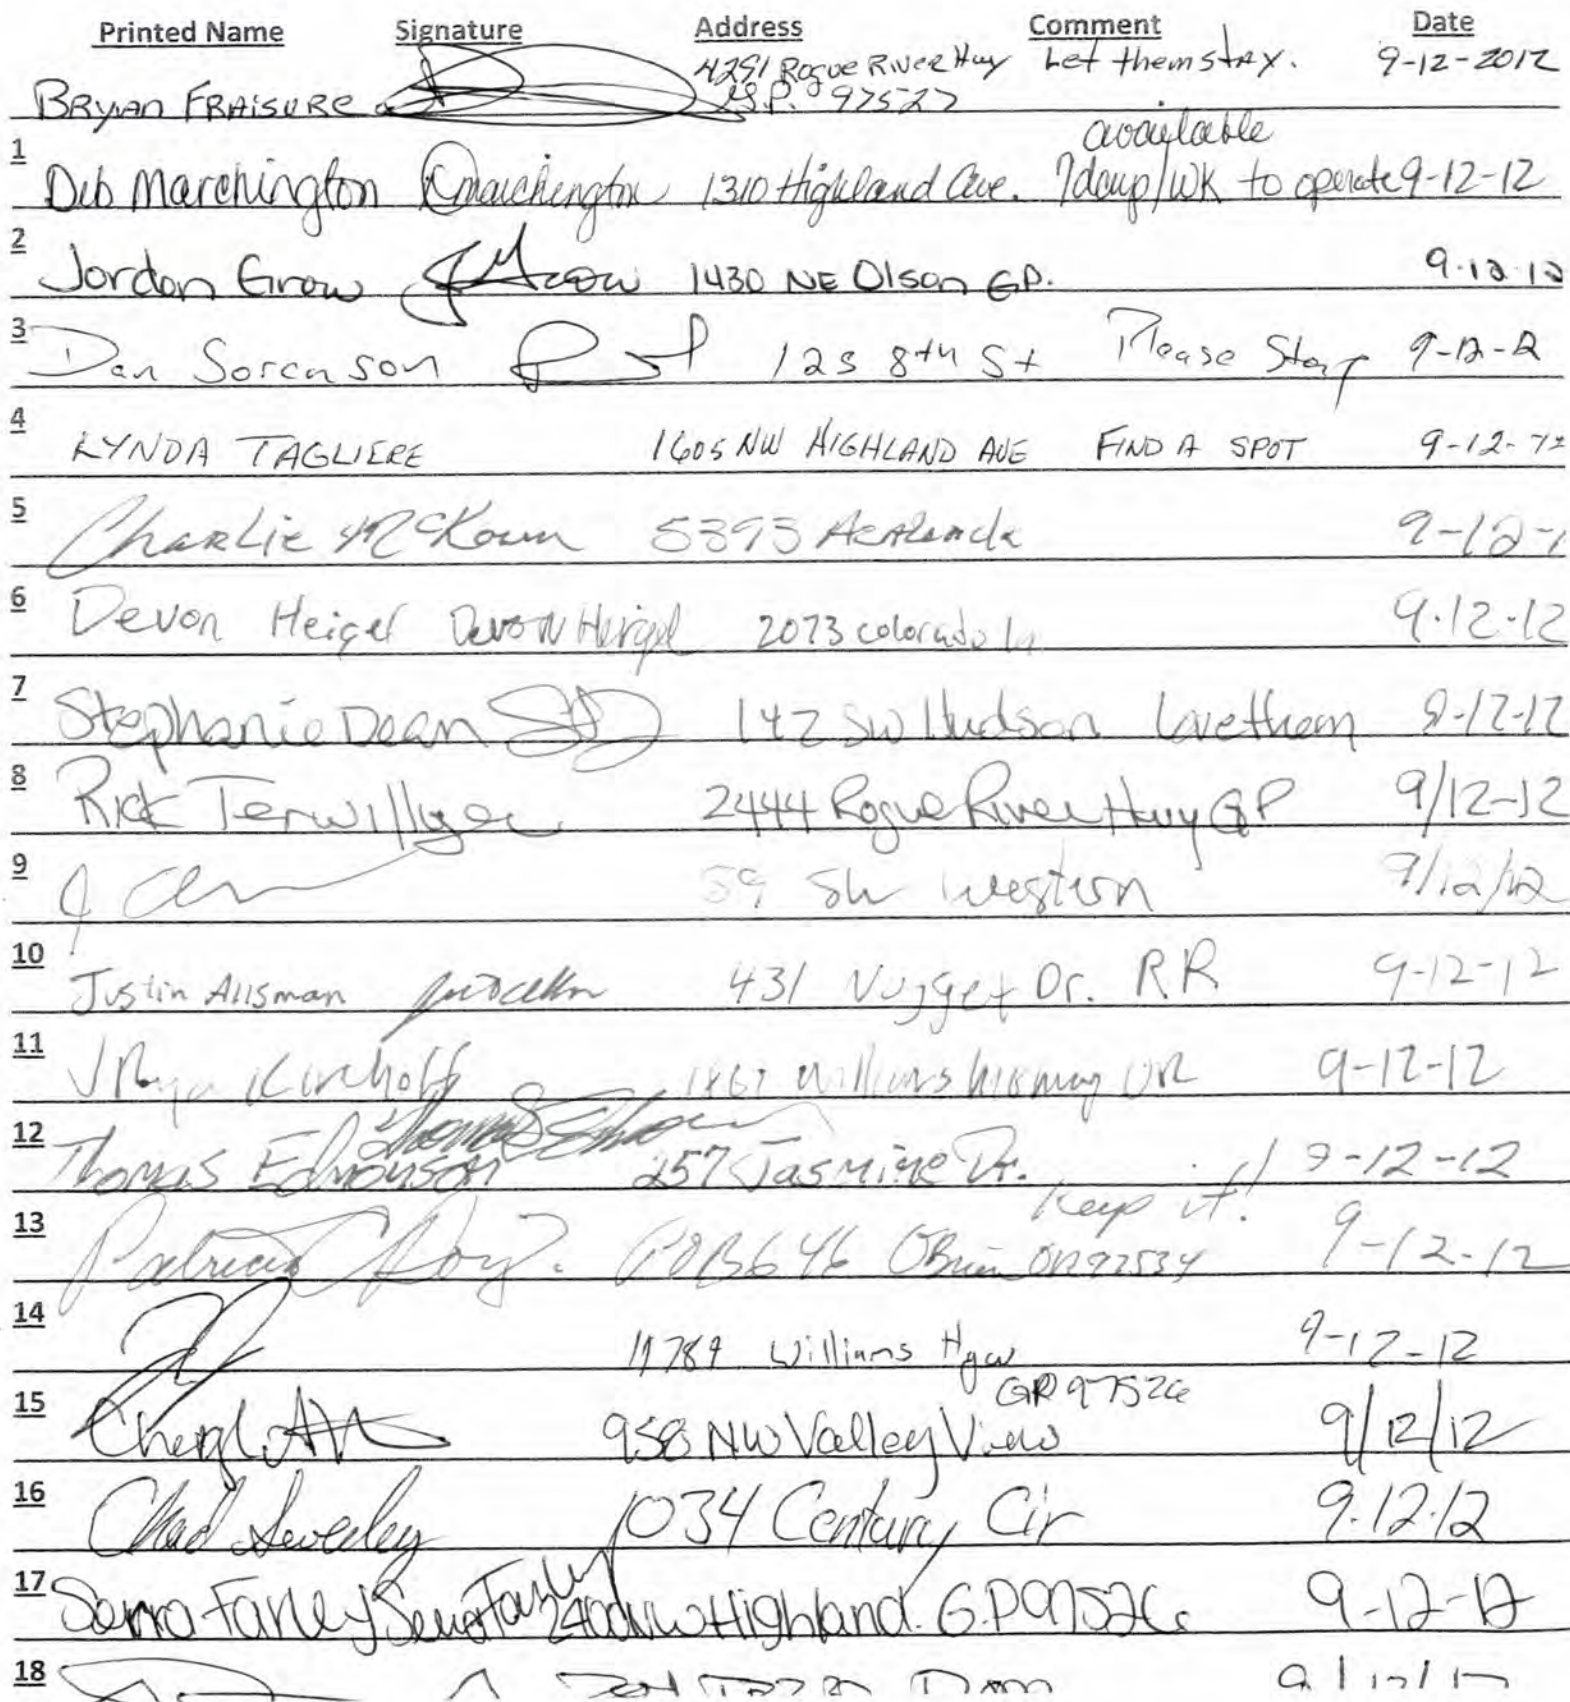 Printed Name Signature Address Comment Date
BRYAN FRAISURE 4291 Rogue River Hwy Let them stay. 9-12-2012
G.P. 97527
available
1 Deb Marchington DMarchington 1310 Highland Ave. 7days/wk to operate 9-12-12
2 Jordan Grow 1430 NE Olson G.P. 9.12.12
3 Dan Sorenson 125 8th St Please Stay 9-12-12
4 LYNDA TAGLIERE 1605 NW HIGHLAND AVE FIND A SPOT 9-12-12
5 Charlie McKown 5393 9-12-1
6 Devon Heigel Devon Heigel 2073 colorado ln 9.12.12
7 Stephanie Dean 142 SW Hudson Love them 9-12-12
8 Rick Terwilliger 2444 Rogue River Hwy GP 9/12-12
9 59 SW Western 9/12/12
10 Justin Allsman 431 Nugget Dr. RR 9-12-12
11 Kirchoff Williams OR 9-12-12
12 Thomas Edmonson 257 Jasmine Dr. 9-12-12
Keep it!
13 Patricia POB 646 OBrien OR 97534 9-12-12
14 11789 Williams Hgw 9-12-12
GP 97526
15 Cheryl 958 NW Valley View 9/12/12
16 Chad 1034 Century Cir 9.12.12
17 Serra Farley Serra Farley 2400 NW Highland. G.P 97526 9-12-12
18